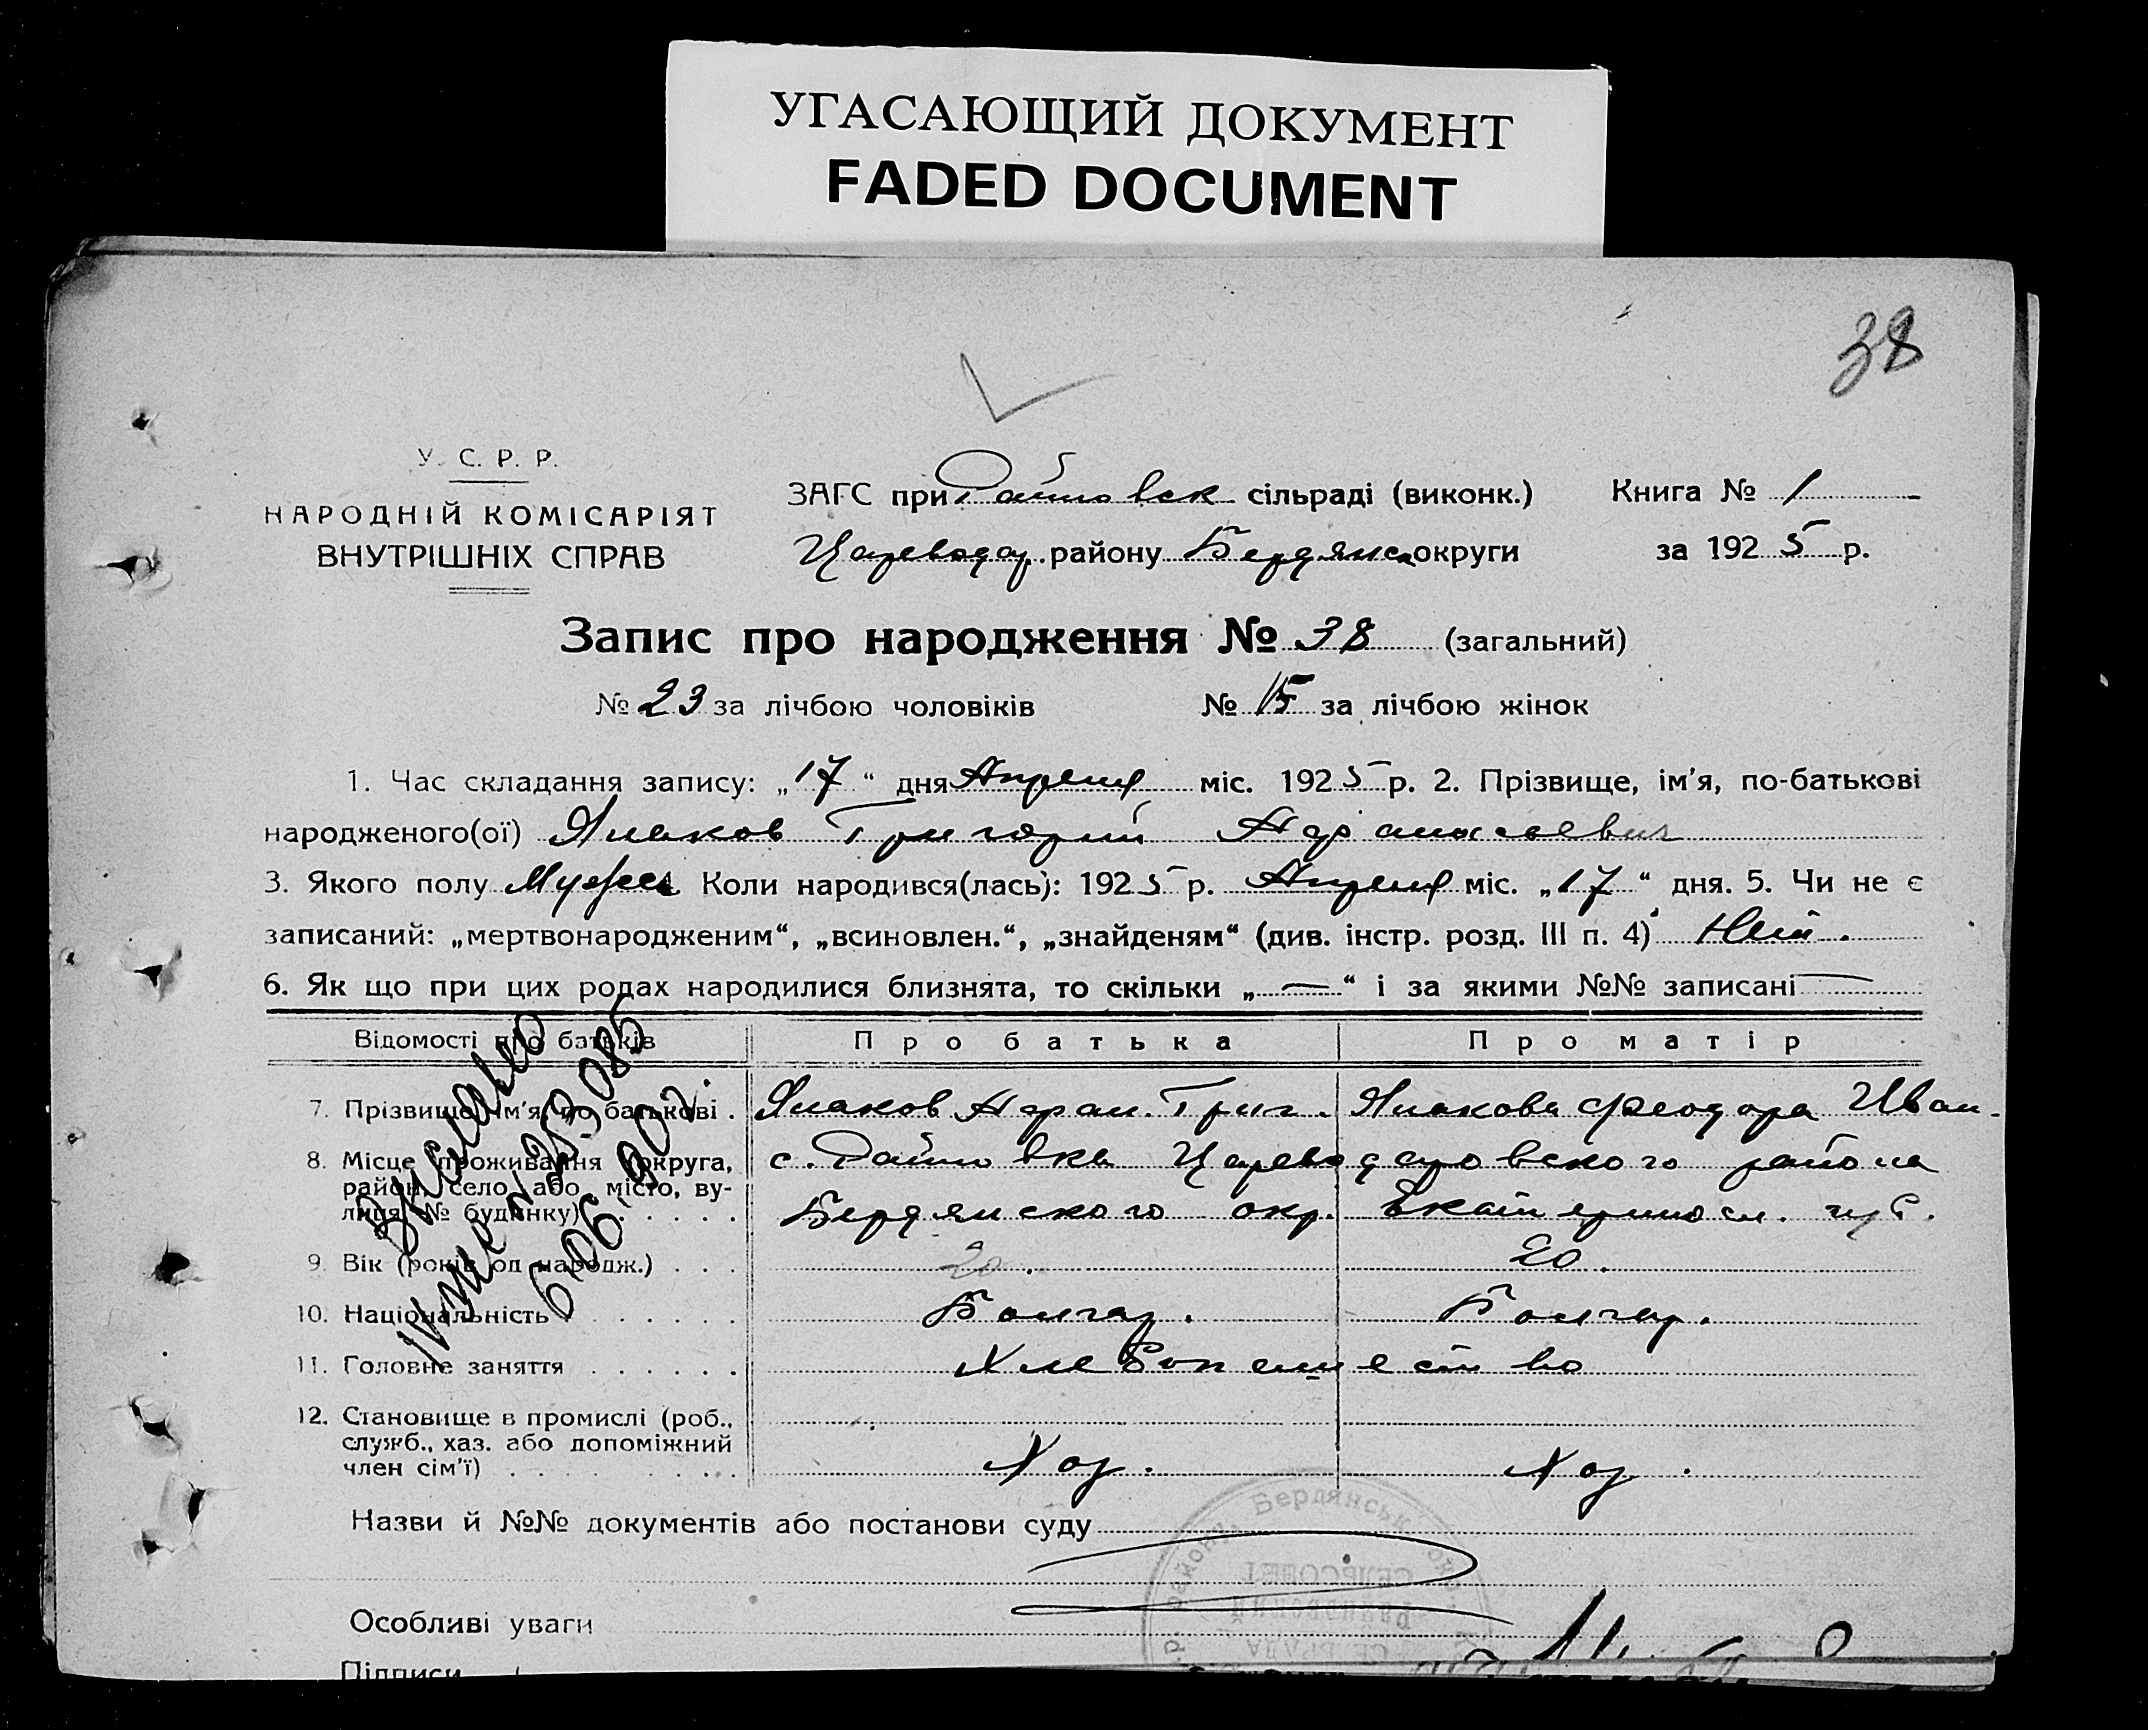 УГАСАЮЩИЙ ДОКУМЕНТ
FADED DOCUMENT
38
У. С. Р. Р.
НАРОДНІЙ КОМІСАРІЯТ
ВНУТРІШНІХ СПРАВ
ЗАГС при Райновск сільраді (виконк.)
Цареводар. району Бердянск округи
Книга № 1
за 1925 р.
Запис про народження № 38 (загальний)
№ 23 за лічбою чоловіків № 15 за лічбою жінок
1. Час складання запису: „17“ дня Апреля міс. 1925 р. 2. Прізвище, ім'я, по-батькові
народженого(ої) Яллаков Григорий Афанасьевич
3. Якого полу Мужеск Коли народився(лась): 1925 р. Апреля міс. „17“ дня. 5. Чи не є
записаний: „мертвонародженим“, „всиновлен.“, „знайденям“ (див. інстр. розд. III п. 4) Нет.
6. Як що при цих родах народилися близнята, то скільки „—“ і за якими №№ записані —
Відомості про батьків
Про батька
Про матір
7. Прізвище, ім'я, по батькові . Афан. Григ. Феодора Иван.
8. Місце проживання (округа, район, село або місто, вулиця, № будинку) с. Райновка Цареводаровского района
Бердянского окр. Екатериносл. губ.
9. Вік (років од народж.) . . . 20. 20.
10. Національність . . . . . . Болгар. Болгар.
11. Головне заняття . . . . . . Хлебопашество
12. Становище в промислі (роб.,
служб., хаз. або допоміжний
член сім'ї) . . . . . . . Хоз. Хоз.
Назви й №№ документів або постанови суду
Особливі уваги
Підписи
Бердянськ
СЕЛЬСОВЕТ